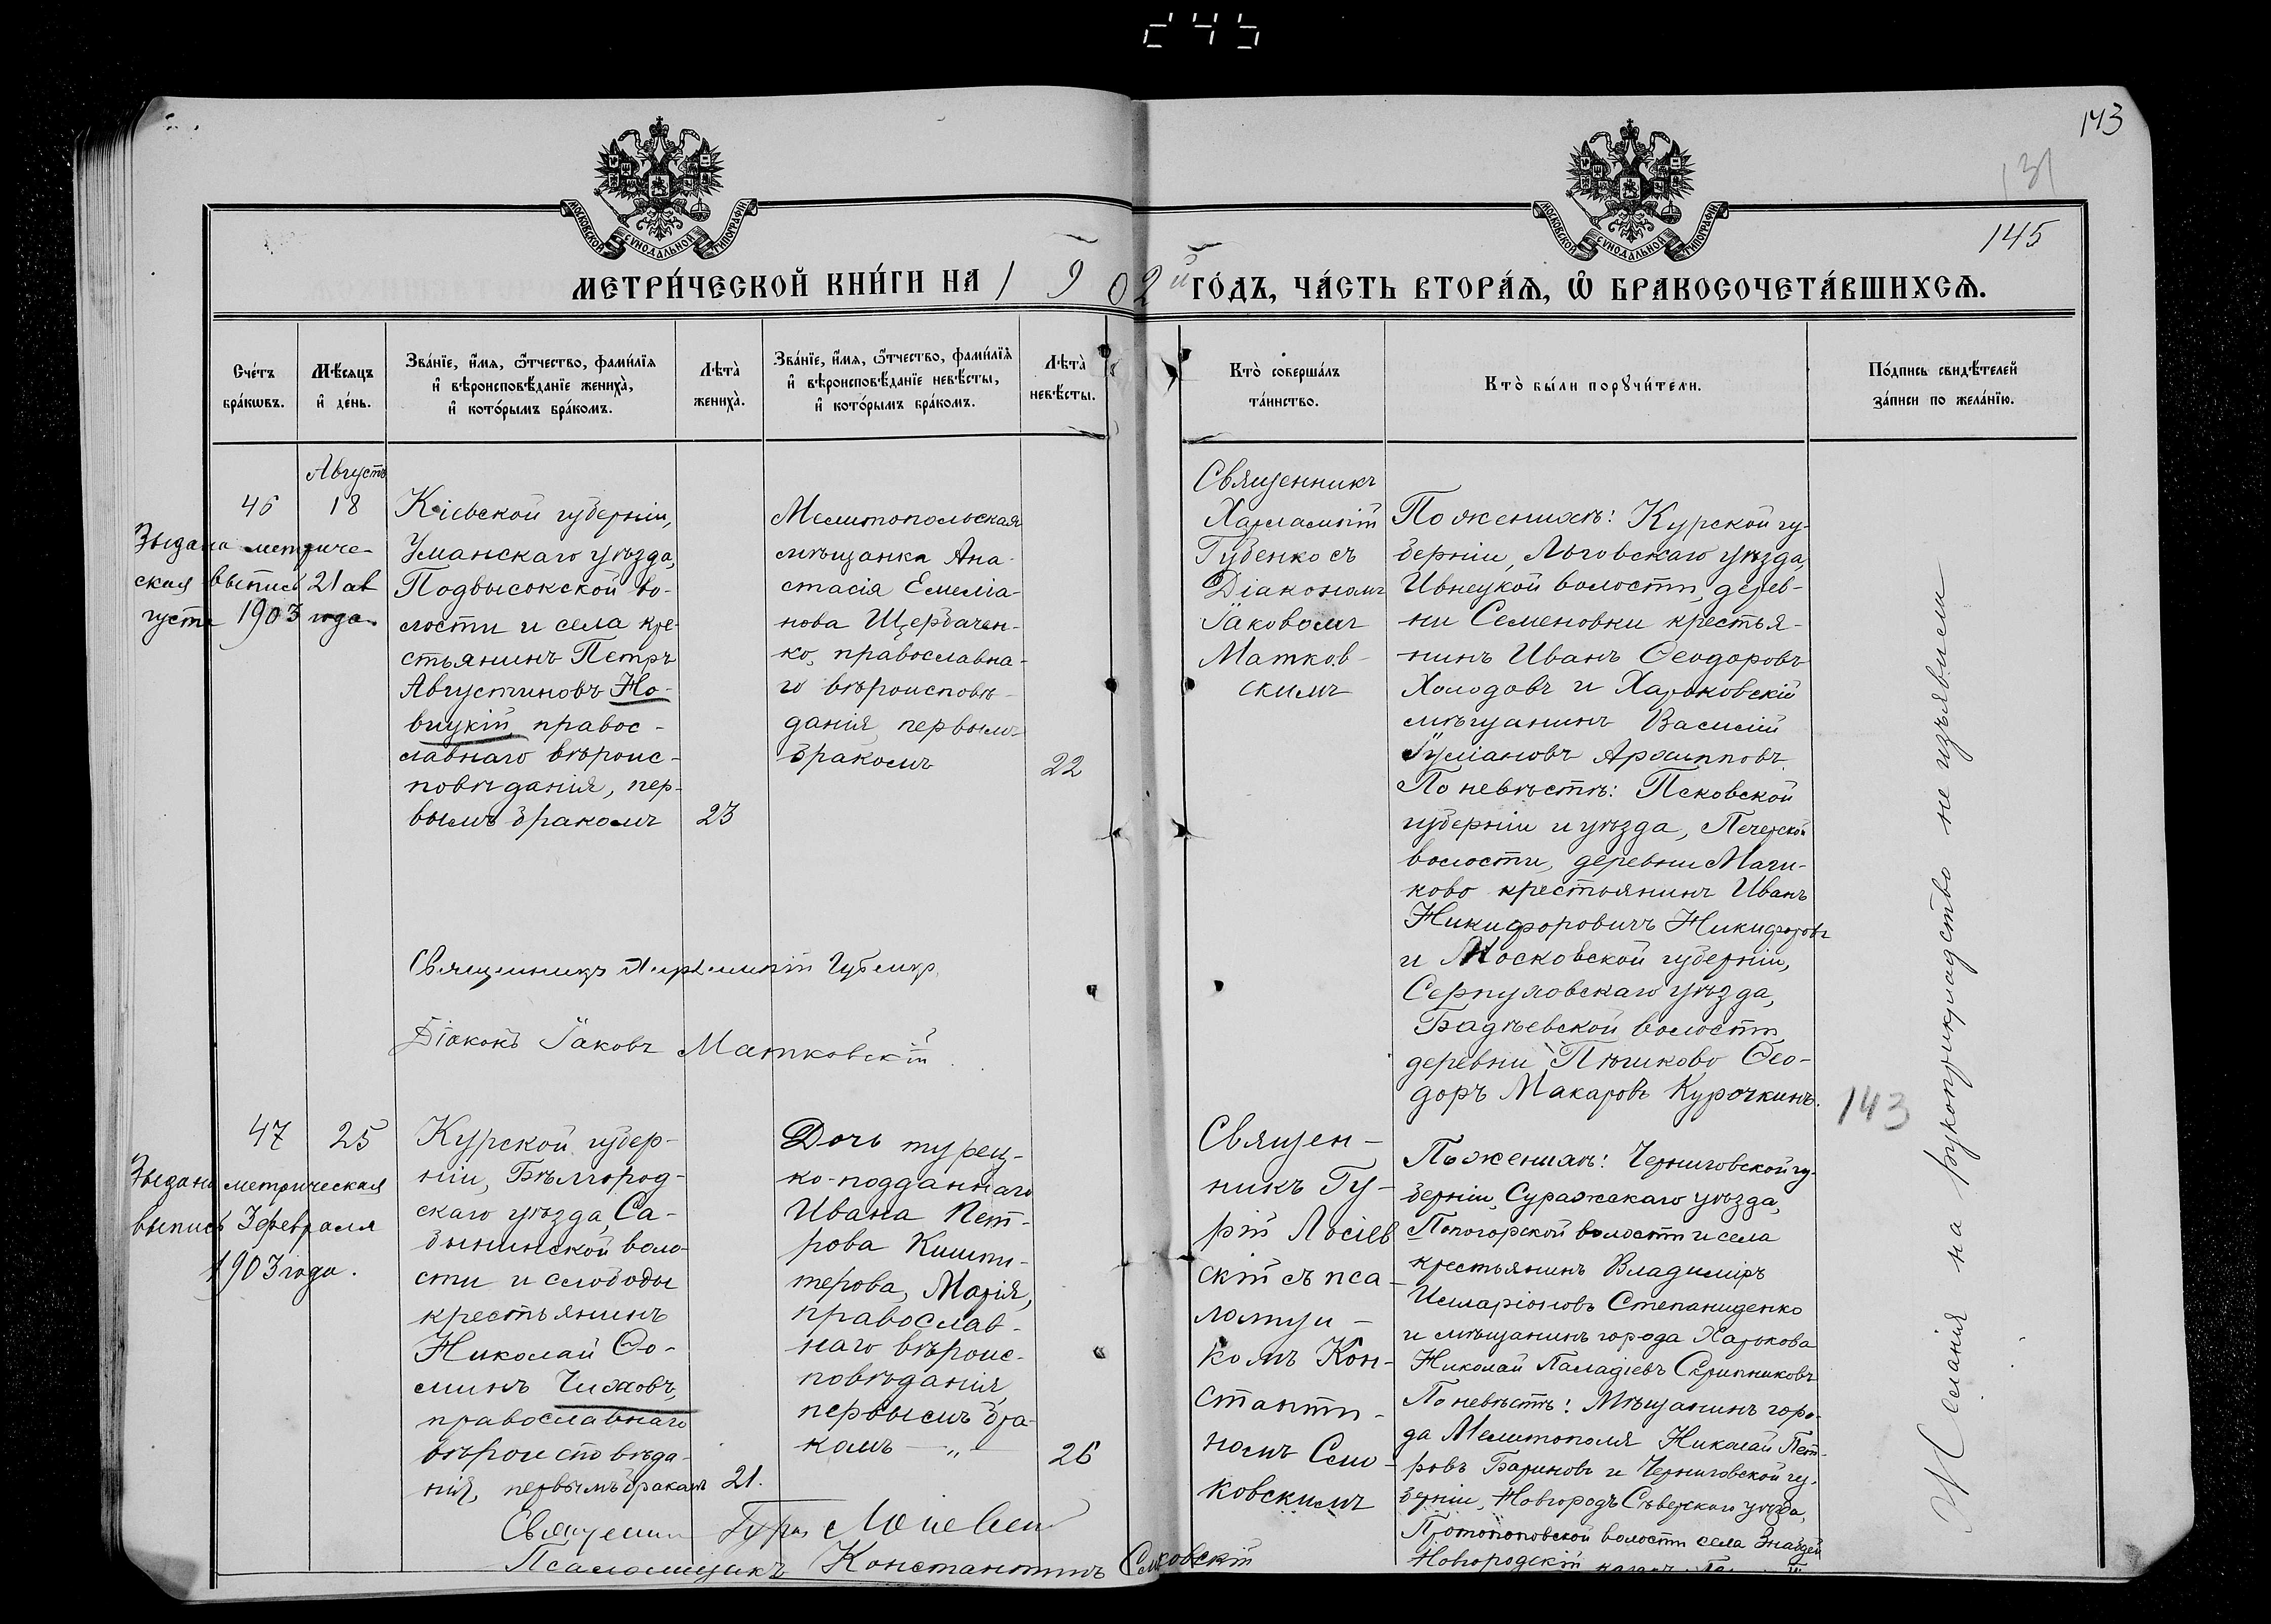 245
143
131
145
МОСКОВСКОЙ СУНОДАЛЬНОЙ ТИПОГРАФІИ
МОСКОВСКОЙ СУНОДАЛЬНОЙ ТИПОГРАФІИ
МЕТРИ́ЧЕСКОЙ КНИ́ГИ НА 1902й ГО́ДЪ, ЧА́СТЬ ВТОРА́Ѧ, Ѡ҆ БРАКОСОЧЕТА́ВШИХСѦ.
Сче́тъ
бра́кѡвъ.
Мѣ́сяцъ
и҆ де́нь.
Зва́нїе, и҆́мя, ѻ҆́тчество, фами́лїя
и҆ вѣроисповѣ́данїе жениха̀,
и҆ кото́рымъ бра́комъ.
Лѣта̀
жениха̀.
Зва́нїе, и҆́мя, ѻ҆́тчество, фами́лїя
и҆ вѣроисповѣ́данїе невѣ́сты,
и҆ кото́рымъ бра́комъ.
Лѣта̀
невѣ́сты.
Кто̀ соверша́лъ
та́инство.
Кто̀ бы́ли порꙋчи́тели.
По́дпись свидѣ́телей
за́писи по жела́нїю.
Августъ
46
18
Выдана метриче-
ская выпись 21 ав
густа 1903 года.
Кіевской губерніи,
Уманскаго уѣзда,
Подвысокской во-
лости и села кре-
стьянинъ Петръ
Августиновъ Но-
вицкій правос-
лавнаго вѣроис-
повѣданія, пер-
вымъ бракомъ
23
Мелитопольская
мѣщанка Ана-
стасія Емеліа-
нова Щербачен-
ко, православна-
го вѣроисповѣ-
данія, первымъ
бракомъ
22
Священникъ
Харлампій
Губенко съ
Діакономъ
Іаковомъ
Матков-
скимъ
По женихѣ: Курской гу-
берніи, Льговскаго уѣзда,
Ивнецкой волости, дерев-
ни Семеновки крестья-
нинъ Иванъ Ѳеодоровъ
Холодовъ и Харьковскій
мѣщанинъ Василій
Іуліановъ Архипповъ.
По невѣстѣ: Псковской
губерніи и уѣзда, Печерской
волости, деревни Мачи-
ково крестьянинъ Иванъ
Никифоровичъ Никифоровъ
и Московской губерніи,
Серпуховскаго уѣзда,
Бадѣевской волости
деревни Пѣшково Ѳео-
доръ Макаровъ Курочкинъ.
Священникъ Харлампій Губенко
Діаконъ Іаковъ Матковскій
143
47
25
Выдана метрическая
выпись 3 февраля
1903 года.
Курской губер-
ніи, Бѣлгород-
скаго уѣзда, Са-
бынинской воло-
сти и слободы
крестьянинъ
Николай Ѳо-
минъ Чиховъ,
православнаго
вѣроисповѣда-
нія, первымъ бракомъ
21.
Дочь турец-
ко-подданнаго
Ивана Пет-
рова Кишти-
терова, Марія,
православ-
наго вѣроис-
повѣданія,
первымъ бра-
комъ — „ —
26
Священ-
никъ Гу-
рій Лосіев
скій съ пса-
ломщи-
комъ Кон-
станти-
номъ Сем-
ковскимъ
По женихѣ: Черниговской гу-
берніи, Суражскаго уѣзда,
Попогорской волости и села
крестьянинъ Владиміръ
Илларіоновъ Степаниденко
и мѣщанинъ города Харькова
Николай Паладіевъ Скрипниковъ
По невѣстѣ: Мѣщанинъ горо-
да Мелитополя Николай Пет-
ровъ Бариновъ и Черниговской гу-
берніи, Новгородъ Сѣверскаго уѣзда,
Протопоповской волости села
Новгородскій казакъ
Священникъ Гурій Лосіевскій
Псаломщикъ Константинъ Семковскій
Желанія на рукоприкладство не изъявили